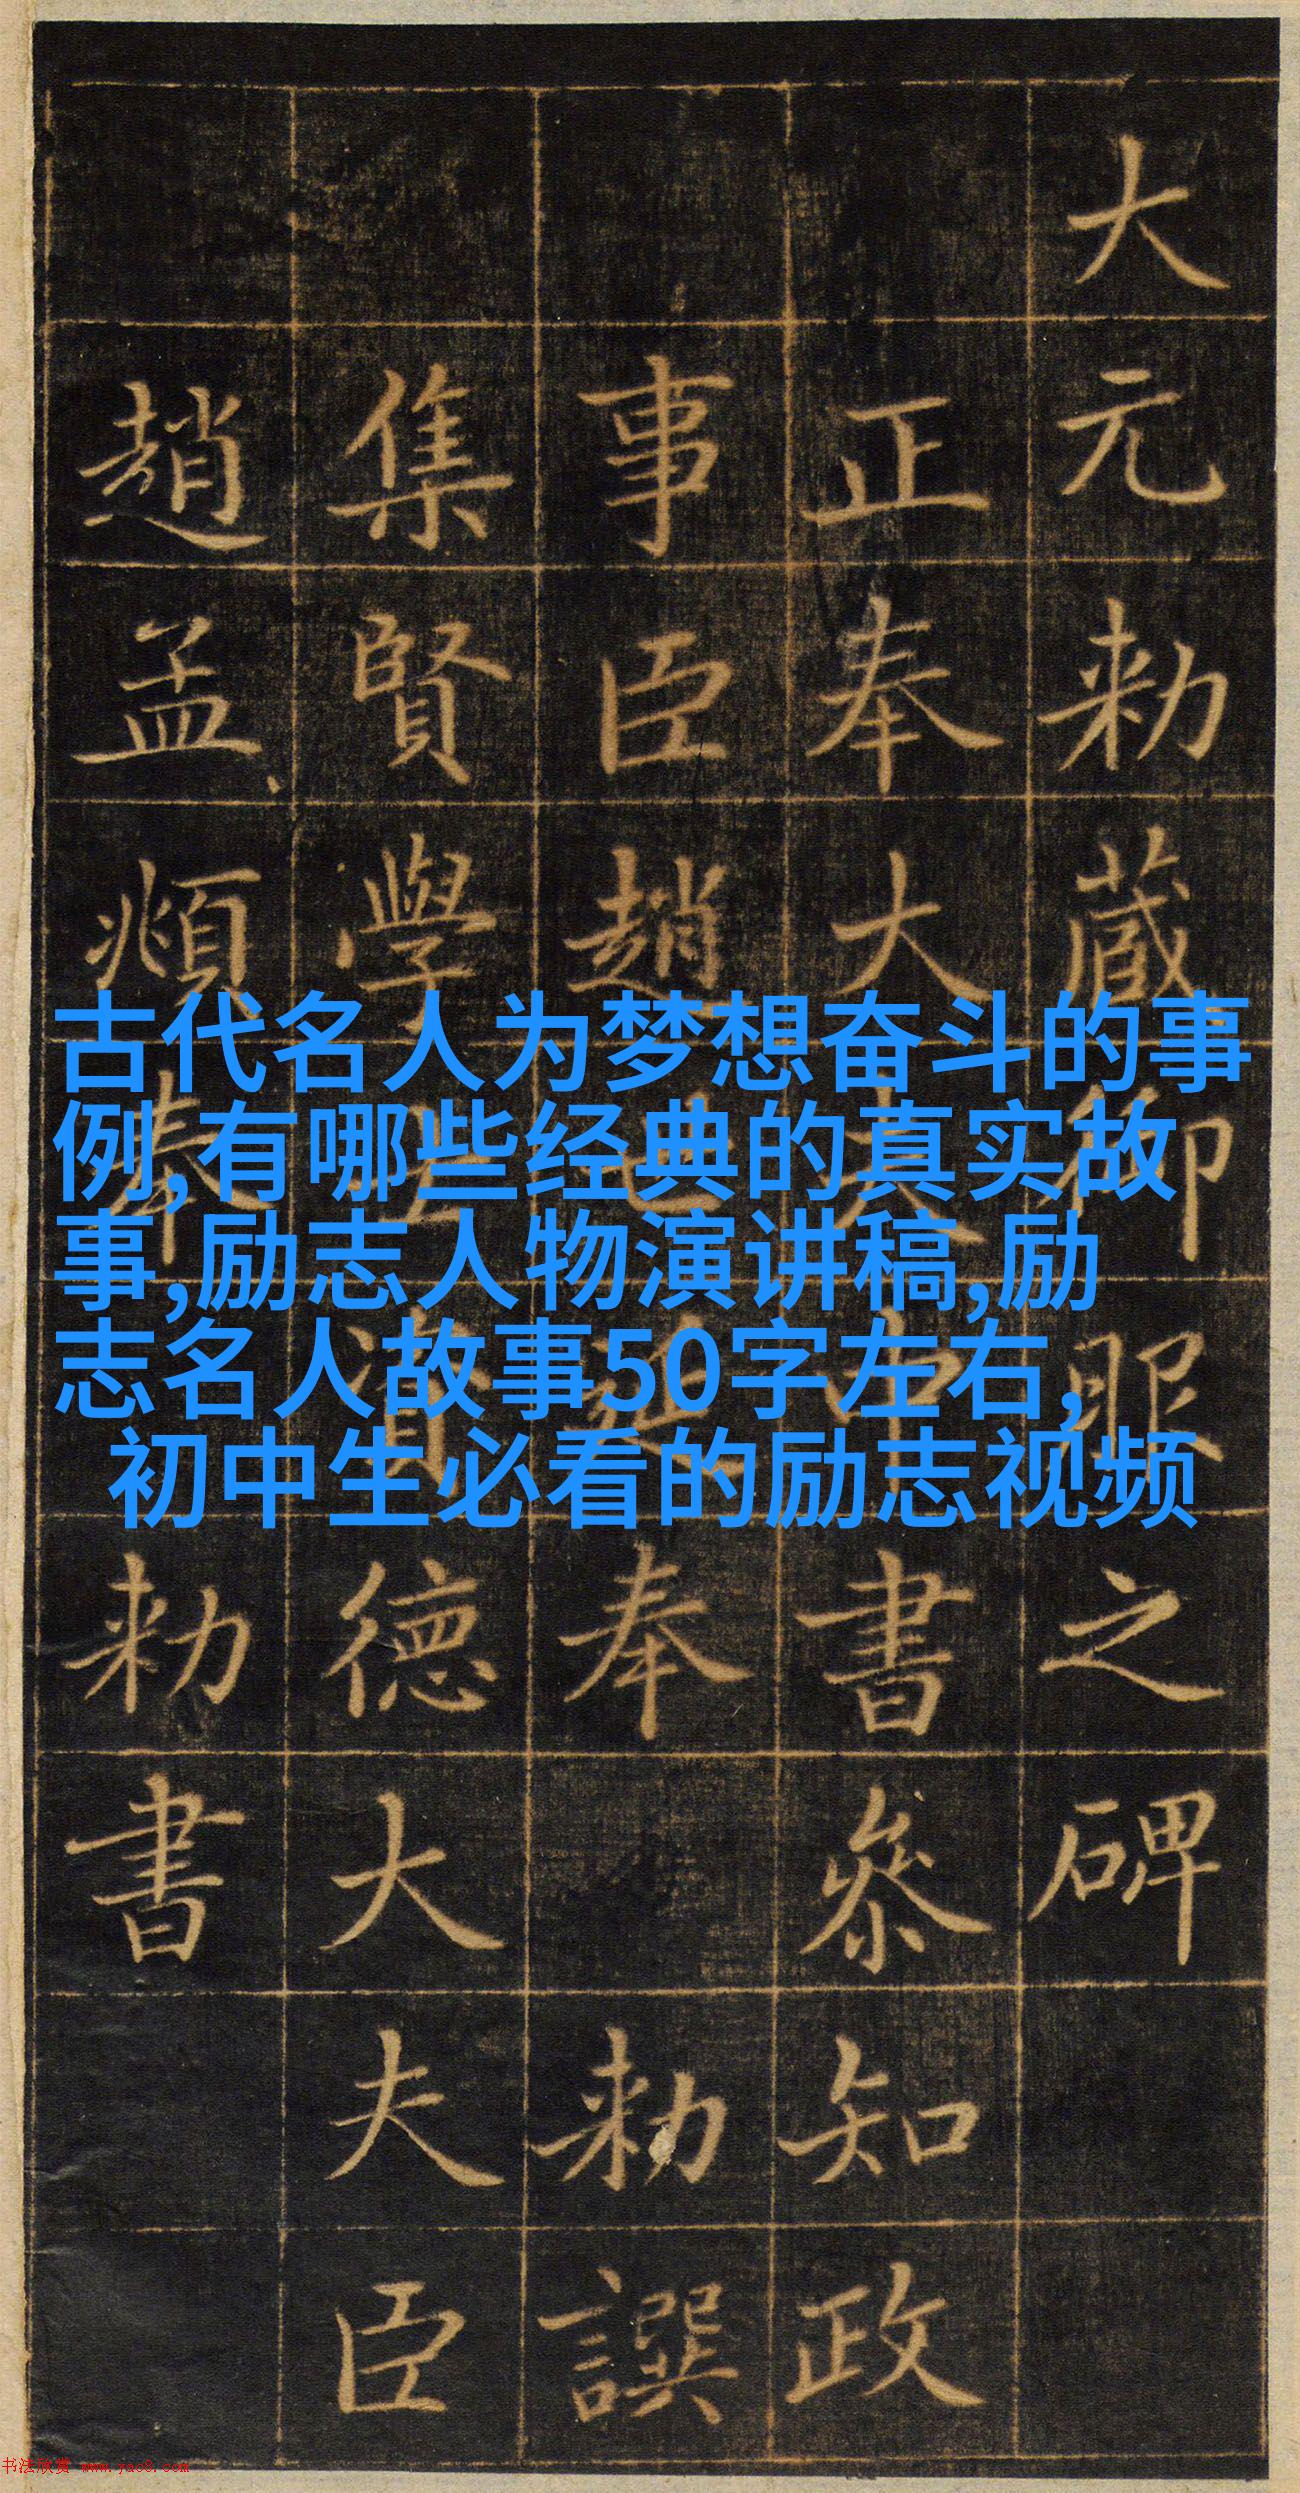 大元勑藏御服之碑
正奉大夫中書參知政
事臣趙世延奉勑譔
集賢學士資德大夫臣
趙孟頫奉勑書
古代名人为梦想奋斗的事
例,有哪些经典的真实故
事,励志人物演讲稿,励
志名人故事50字左右,
初中生必看的励志视频
书法欣赏 www.yac8.com